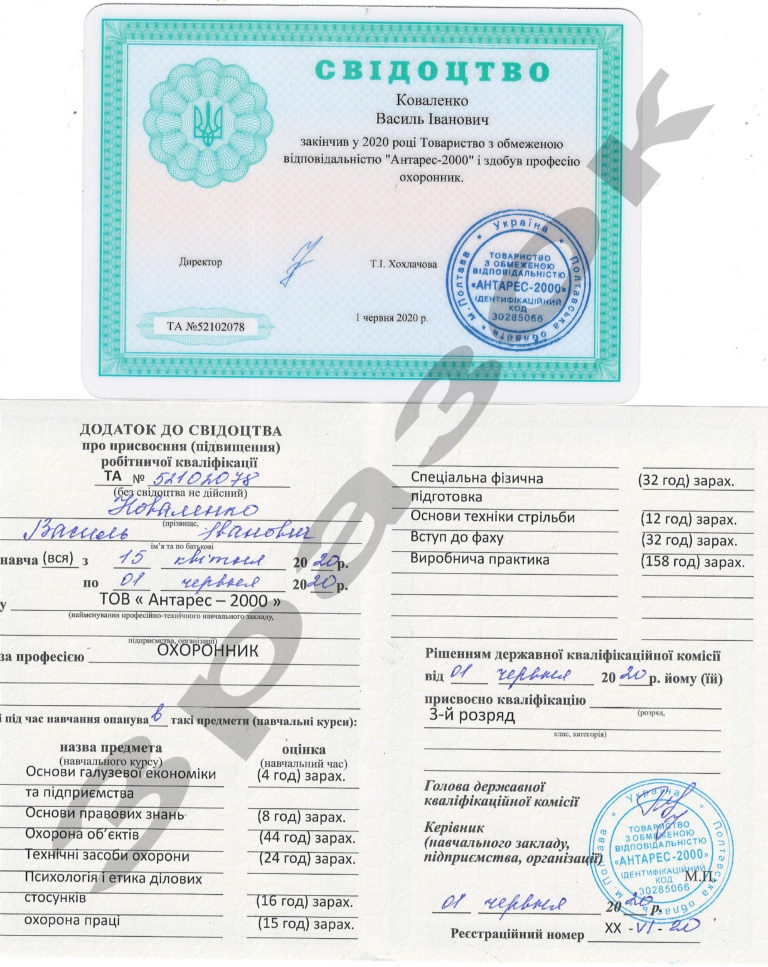 СВІДОЦТВО
Коваленко
Василь Іванович
закінчив у 2020 році Товариство з обмеженою
відповідальністю "Антарес-2000" і здобув професію
охоронник.
Директор
Т.І. Хохлачова
1 червня 2020 р.
ТА №52102078
* Україна *
м. Полтава * Полтавська область *
ТОВАРИСТВО
З ОБМЕЖЕНОЮ
ВІДПОВІДАЛЬНІСТЮ
«АНТАРЕС-2000»
ІДЕНТИФІКАЦІЙНИЙ
КОД
30285066
Зразок
ДОДАТОК ДО СВІДОЦТВА
про присвоєння (підвищення)
робітничої кваліфікації
ТА № 52102078
(без свідоцтва не дійсний)
Коваленко
(прізвище,
Василь Іванович
ім'я та по батькові
навча (вся) з 15 квітня 2020р.
по 01 червня 2020р.
у ТОВ « Антарес – 2000 »
(найменування професійно-технічного навчального закладу,
підприємства, організації)
за професією ОХОРОННИК
і під час навчання опанува в такі предмети (навчальні курси):
назва предмета оцінка
(навчального курсу) (навчальний час)
Основи галузевої економіки (4 год) зарах.
та підприємства
Основи правових знань (8 год) зарах.
Охорона об’єктів (44 год) зарах.
Технічні засоби охорони (24 год) зарах.
Психологія і етика ділових
стосунків (16 год) зарах.
охорона праці (15 год) зарах.
Спеціальна фізична (32 год) зарах.
підготовка
Основи техніки стрільби (12 год) зарах.
Вступ до фаху (32 год) зарах.
Виробнича практика (158 год) зарах.
Рішенням державної кваліфікаційної комісії
від 01 червня 2020р. йому (їй)
присвоєно кваліфікацію
3-й розряд (розряд,
клас, категорія)
Голова державної
кваліфікаційної комісії
Керівник
(навчального закладу,
підприємства, організації)
М.П.
* Україна *
м. Полтава * Полтавська область *
ТОВАРИСТВО
З ОБМЕЖЕНОЮ
ВІДПОВІДАЛЬНІСТЮ
«АНТАРЕС-2000»
ІДЕНТИФІКАЦІЙНИЙ
КОД
30285066
01 червня 2020 р.
Реєстраційний номер XX -VI- 20